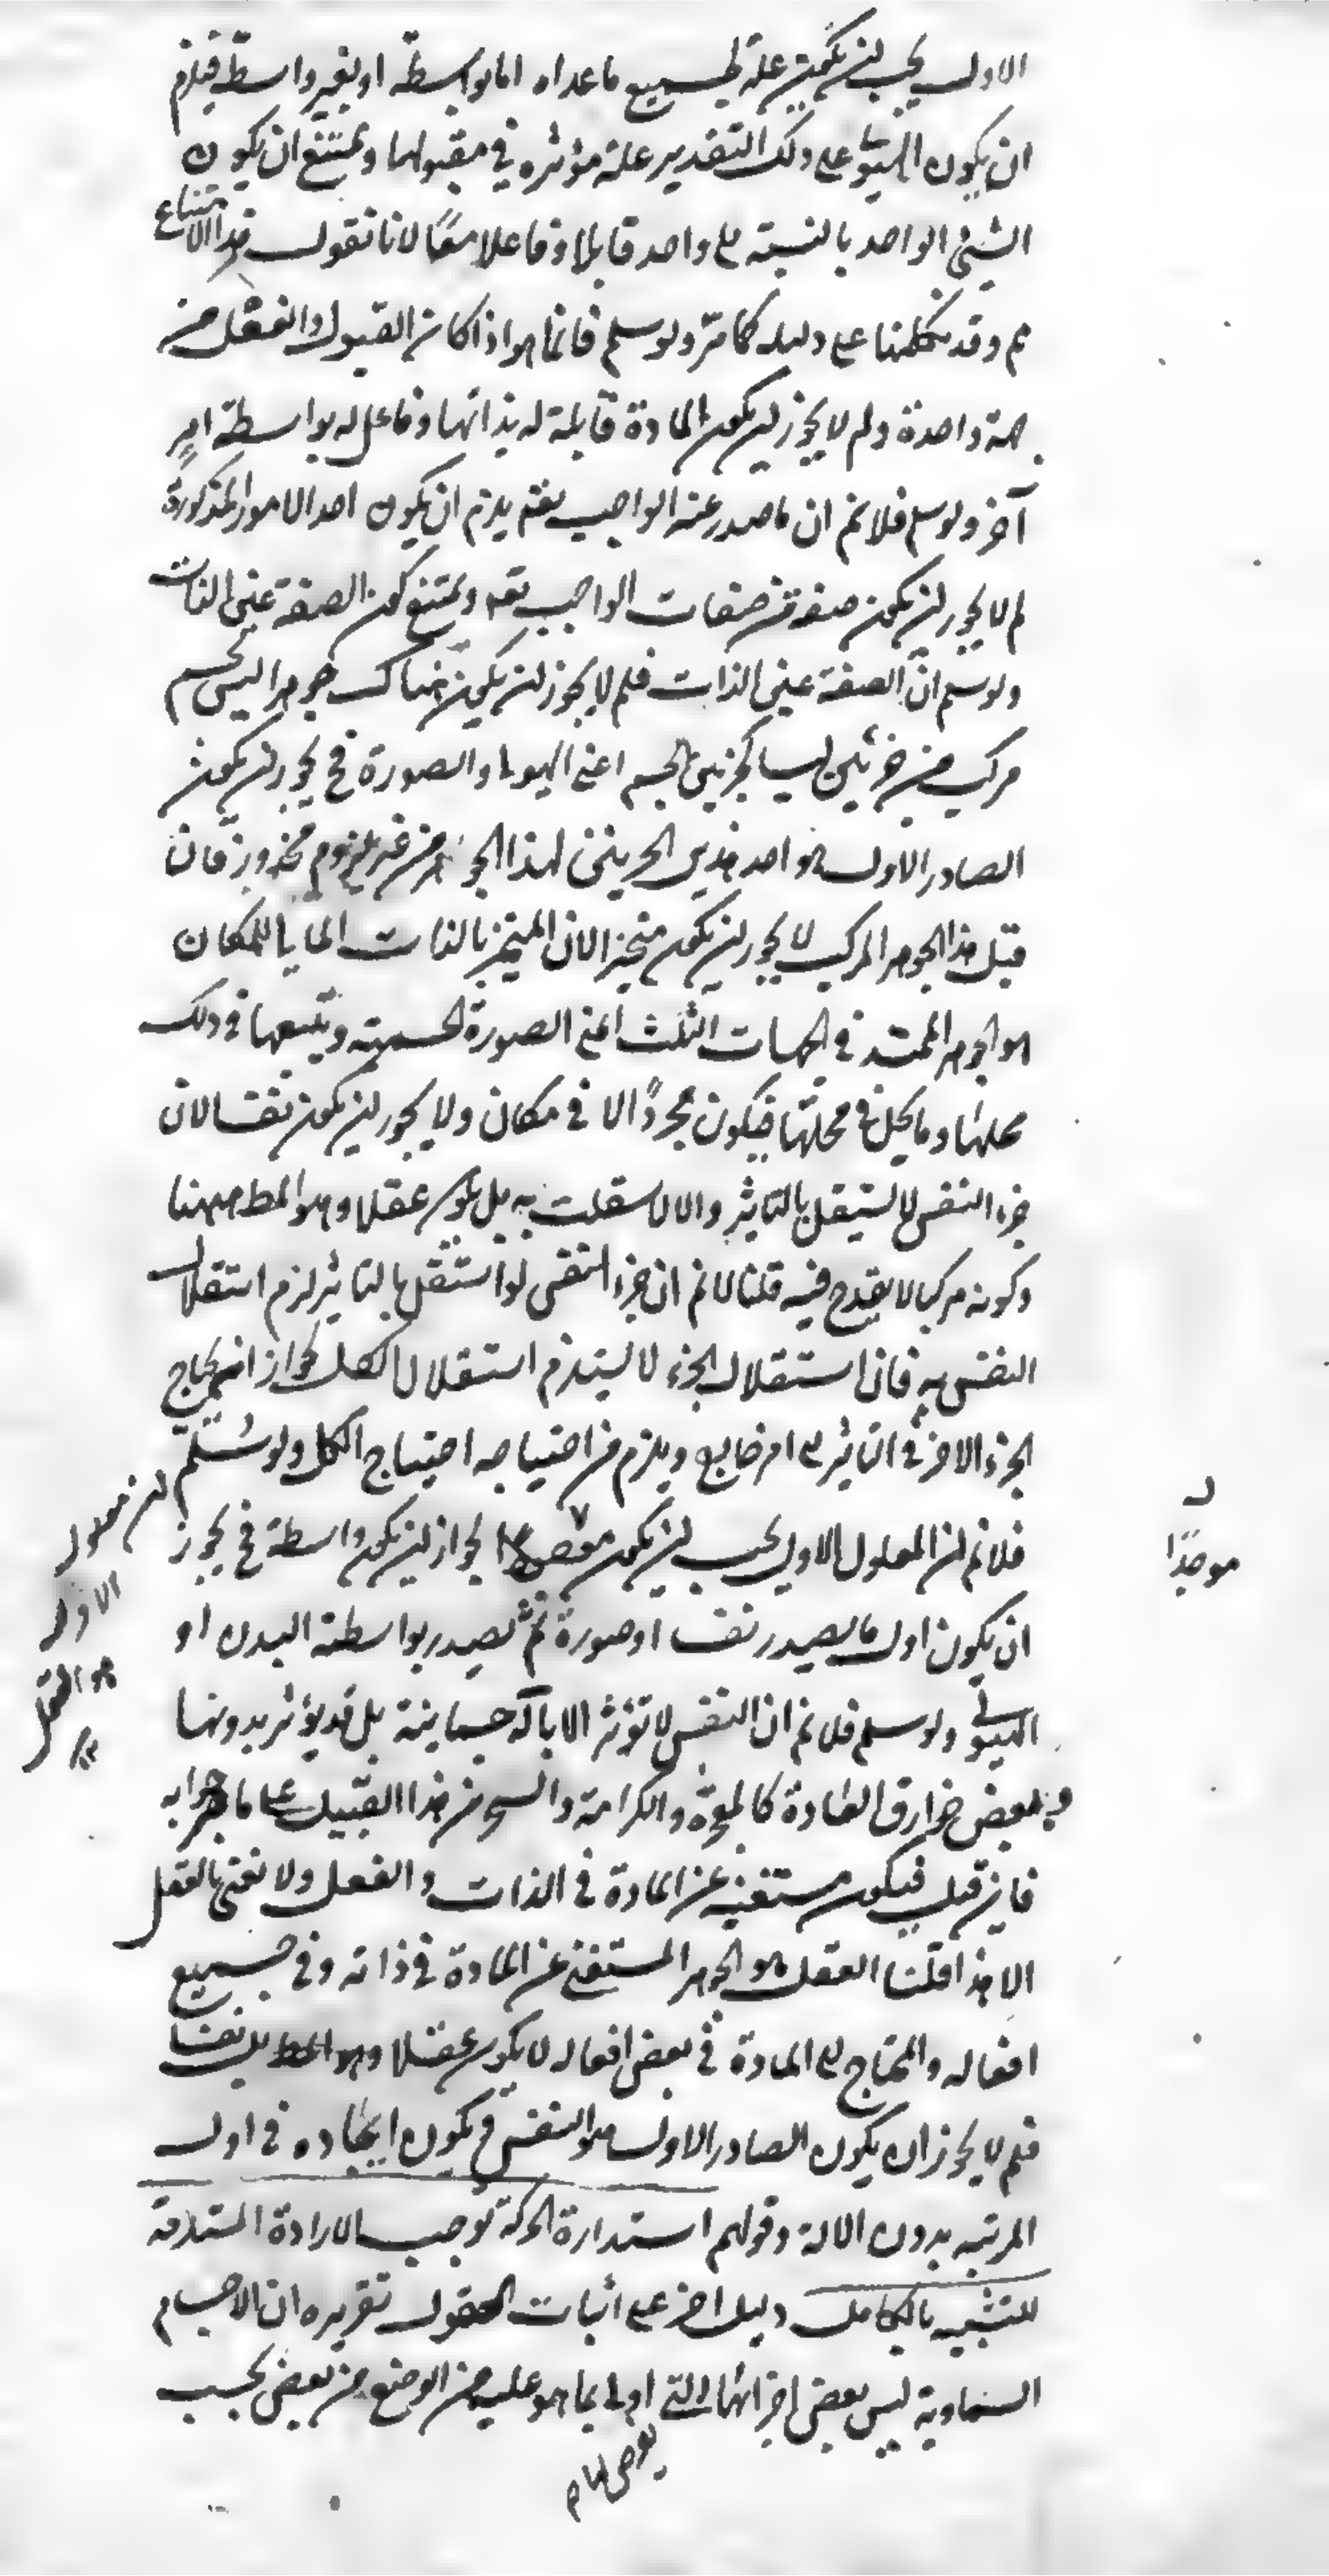 الاول يجب ان يكون علة لجميع ما عداه اما بواسطة او بغير واسطة فيلزم
ان يكون الهيولى على ذلك التقدير علة مؤثرة في مقبولها ويمتنع ان يكون
الشيئ الواحد بالنسبة الى واحد قابلا وفاعلا معًا لانا نقول هذا الامتناع
مم وقد تكلمنا على دليله كما مرّ ولو سلم فانما هو اذا كان القبول والفعل من
جهة واحدة ولم لا يجوز ان يكون المادة قابلة له بذاتها وفاعل له بواسطة امرٍ
آخر ولو سلم فلانم ان ما صدر عنه الواجب تعم يلزم ان يكون احد الامور المذكورة
لم لا يجوز ان يكون صفة من صفات الواجب تعه ويمتنع كون الصفة عين الذات
ولو سلم انّ الصفة عين الذات فلم لا يجوز ان يكون هناك جوهر ليس بجسم
مركب من جزئين ليسا كجزيئ الجسم اعني الهيولى والصورة فح يجوز ان يكون
الصادر الاول هو احد هذين الجزيئن لهذا الجوهر من غير لزوم محذور فان
قيل هذا الجوهر المركب لا يجوز ان يكون متحيزا لان المتحيز بالذات المالئ للمكان
هو الجوهر الممتد في الجهات الثلث اعني الصورة الجسمية ويتبعها في ذلك
محلها وما يحل في محلها فيكون مجردًا لا في مكان ولا يجوز ان يكون نفسا لان
جزء النفس لا يستقل بالتاثير والا لاستقلت به بل يكون عقلا وهو المط ههنا
وكونه مركبا لا يقدح فيه قلنا لانم ان جزء النفس لو استقل بالتاثير لزم استقلال
النفس به فان استقلال الجزء لا يستلزم استقلال الكل لجواز ان يحتاج
الجزء الاخر في التاثير الى امر خارج ويلزم من احتياجه احتياج الكل ولو سُلّم
فلانم ان المعلول الاول يجب ان يكون موجدًا لجواز ان يكون واسطة فح يجوز
ان يكون اول ما يصدر نفسا او صورة ثم يصدر بواسطته البدن او
الهيولى ولو سلم فلانم ان النفس لا تؤثر الا بآلة جسمانية بل قد يؤثر بدونها
فبعض خوارق العادة كالمعجزة والكرامة والسحر من هذا القبيل على ما صرحوا به
فان قيل فيكون مستغنيه عن المادة في الذات والفعل ولا نعني بالعقل
الا هذا قلنا العقل هو الجوهر المستغني عن المادة في ذاته وفي جميع
افعاله والمحتاج الى المادة في بعض افعاله لا يكون عقلا بل نفسا
فلم لا يجوز ان يكون الصادر الاول هو النفس فيكون ايجاده في اول
المرتبه بدون الالة وقولهم استدارة الحركة توجب الارادة المستلزمة
للتشبيه بالكامل دليل اخر على اثبات العقول تقريره ان الاجسام
السماوية ليس بعض اجزائها التي اولى بما هو عليه من الوضع من بعض بحسب
موجدًا
ان معلول
الاول
هو العقل